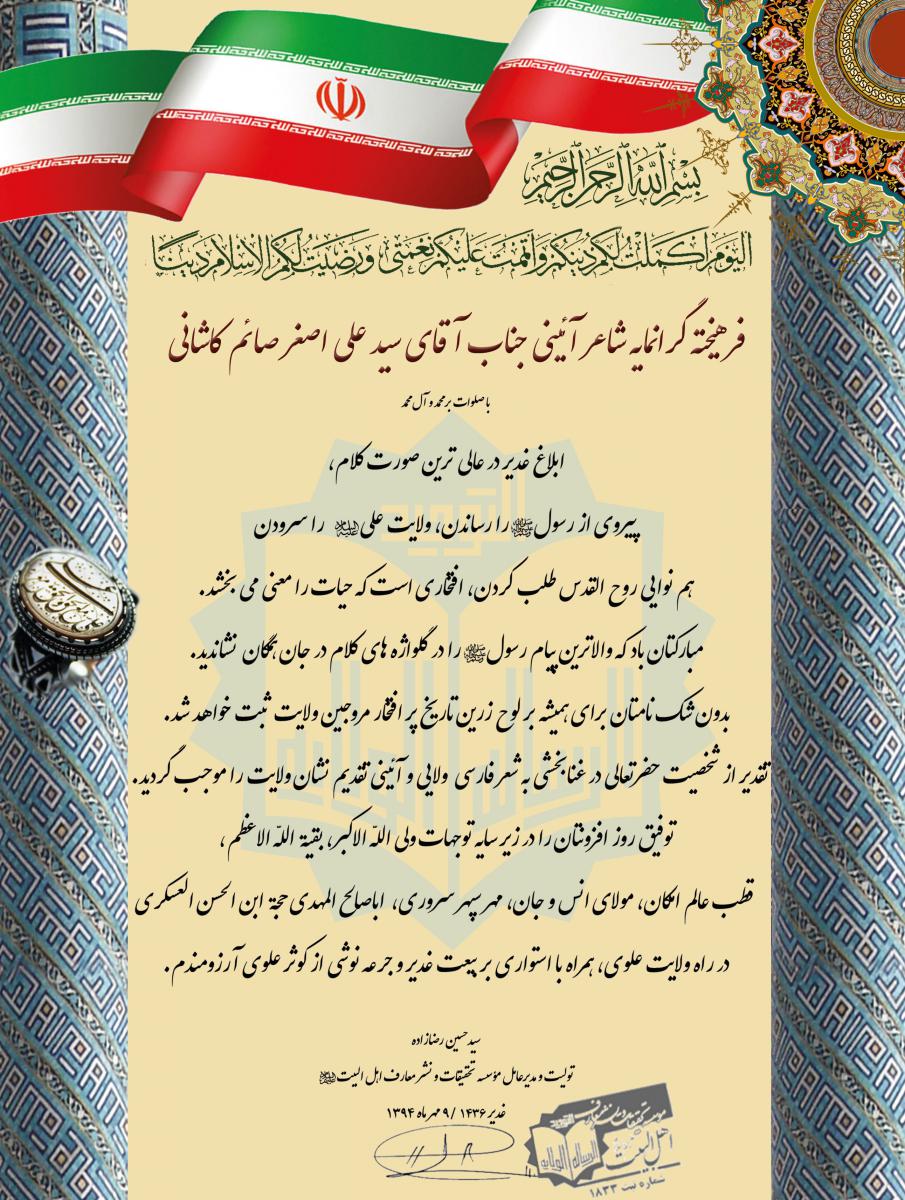 بسم الله الرحمن الرحیم
الیوم اکملت لکم دینکم و اتممت علیکم نعمتی و رضیت لکم الاسلام دینا
فرهیخته گرانمایه شاعر آئینی جناب آقای سید علی اصغر صائم کاشانی
با صلوات بر محمد و آل محمد
ابلاغ غدیر در عالی ترین صورت کلام ،
پیروی از رسول ﷺ را رساندن، ولایت علی علیه السلام را سرودن
هم نوایی روح القدس طلب کردن، افتخاری است که حیات را معنی می بخشد.
مبارکتان باد که والاترین پیام رسول ﷺ را در گلواژه های کلام در جان همگان نشاندید.
بدون شک نامتان برای همیشه بر لوح زرین تاریخ پر افتخار مروجین ولایت ثبت خواهد شد.
تقدیر از شخصیت حضرتعالی در غنا بخشی به شعر فارسی ولایی و آئینی تقدیم نشان ولایت را موجب گردید.
توفیق روز افزونتان را در زیر سایه توجهات ولی اللّه الاکبر، بقیة اللّه الاعظم ،
قطب عالم امکان، مولای انس و جان، مهر سپهر سروری، اباصالح المهدی حجة ابن الحسن العسکری
در راه ولایت علوی، همراه با استواری بر بیعت غدیر و جرعه نوشی از کوثر علوی آرزومندم.
سید حسین رضازاده
تولیت و مدیر عامل مؤسسه تحقیقات و نشر معارف اهل البیت علیهم السلام
غدیر ۱۴۳۶ / ۹ مهر ماه ۱۳۹۴
مؤسسه تحقیقات و نشر معارف
اهل البیت
الرساله الولایه
شماره ثبت ۱۸۳۳